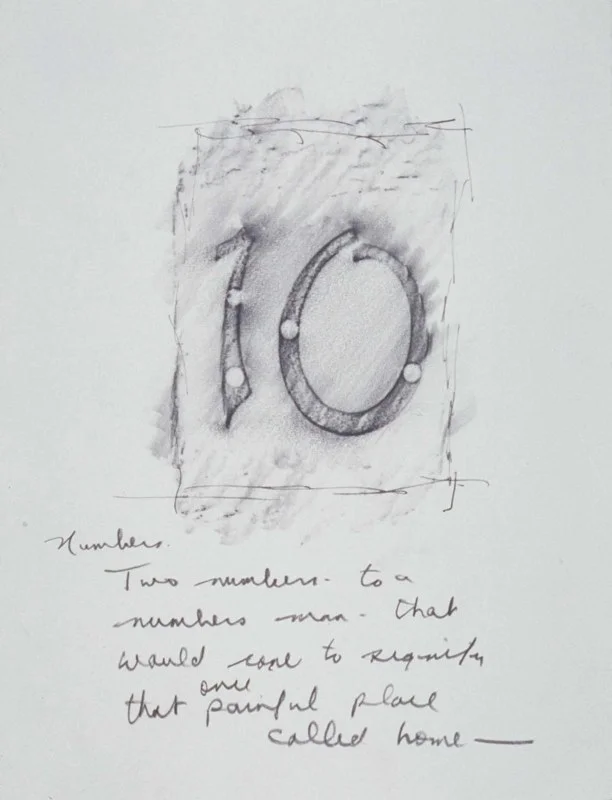 10
Numbers.
Two numbers - to a
numbers man - that
would come to signify
once
that painful place
called home —